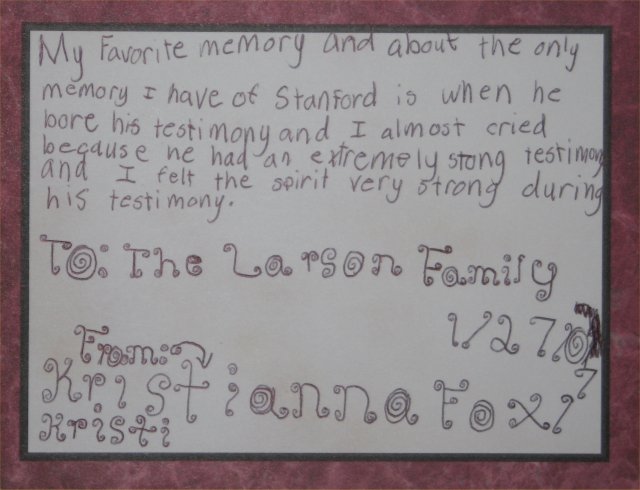 My Favorite memory and about the only
memory I have of Stanford is when he
bore his testimony and I almost cried
because he had an extremely stong testimony
and I felt the spirit very strong during
his testimony.
To: The Larson Family
1/27/07
From:
Kristianna Fox/
Kristi